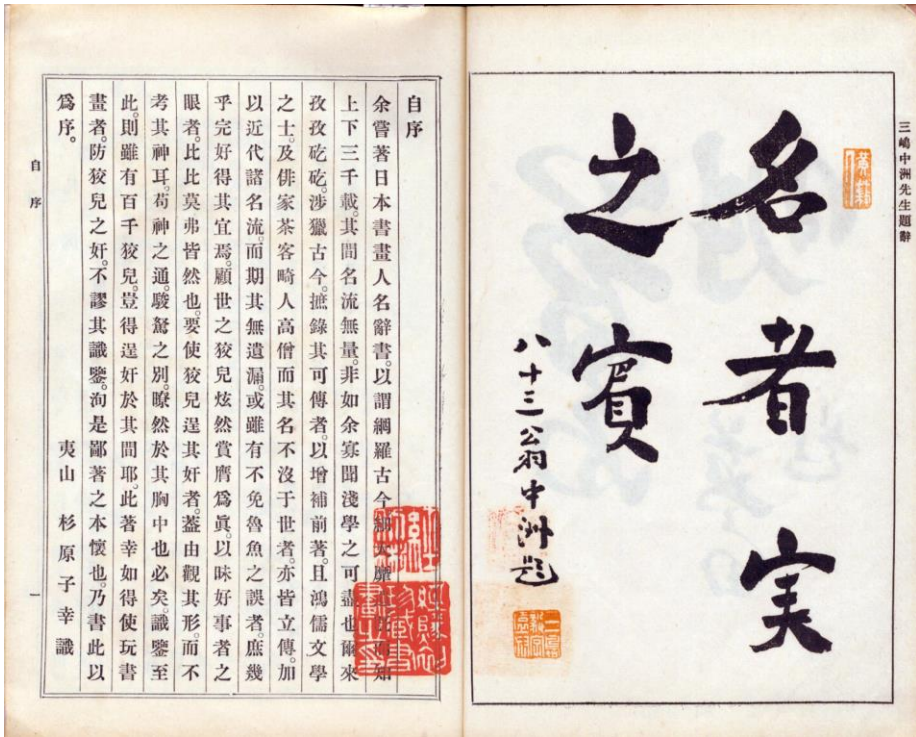 三嶋中洲先生題辭
名者実
之賓
八十三翁中洲題
自序
余嘗著日本書畫人名辭書。以謂網羅古今
上下三千載。其間名流無量。非如余寡聞淺學之可盡也爾來
孜孜矻矻。涉獵古今。摭錄其可傳者。以增補前著。且鴻儒文學
之士。及俳家茶客畸人高僧而其名不沒于世者。亦皆立傳。加
以近代諸名流。而期其無遺漏。或雖有不免魯魚之誤者。庶幾
乎完好得其宜焉。顧世之狡兒炫然賞贋爲眞。以味好事者之
眼者。比比莫弗皆然也。要使狡兒逞其奸者。蓋由觀其形。而不
考其神耳。苟神之通。駿駑之別。瞭然於其胸中也必矣。識鑒至
此。則雖有百千狡兒。豈得逞奸於其間耶。此著幸如得使玩書
畫者。防狡兒之奸。不謬其識鑒。洵是鄙著之本懷也。乃書此以
爲序。
夷山 杉原子幸識
自序
一